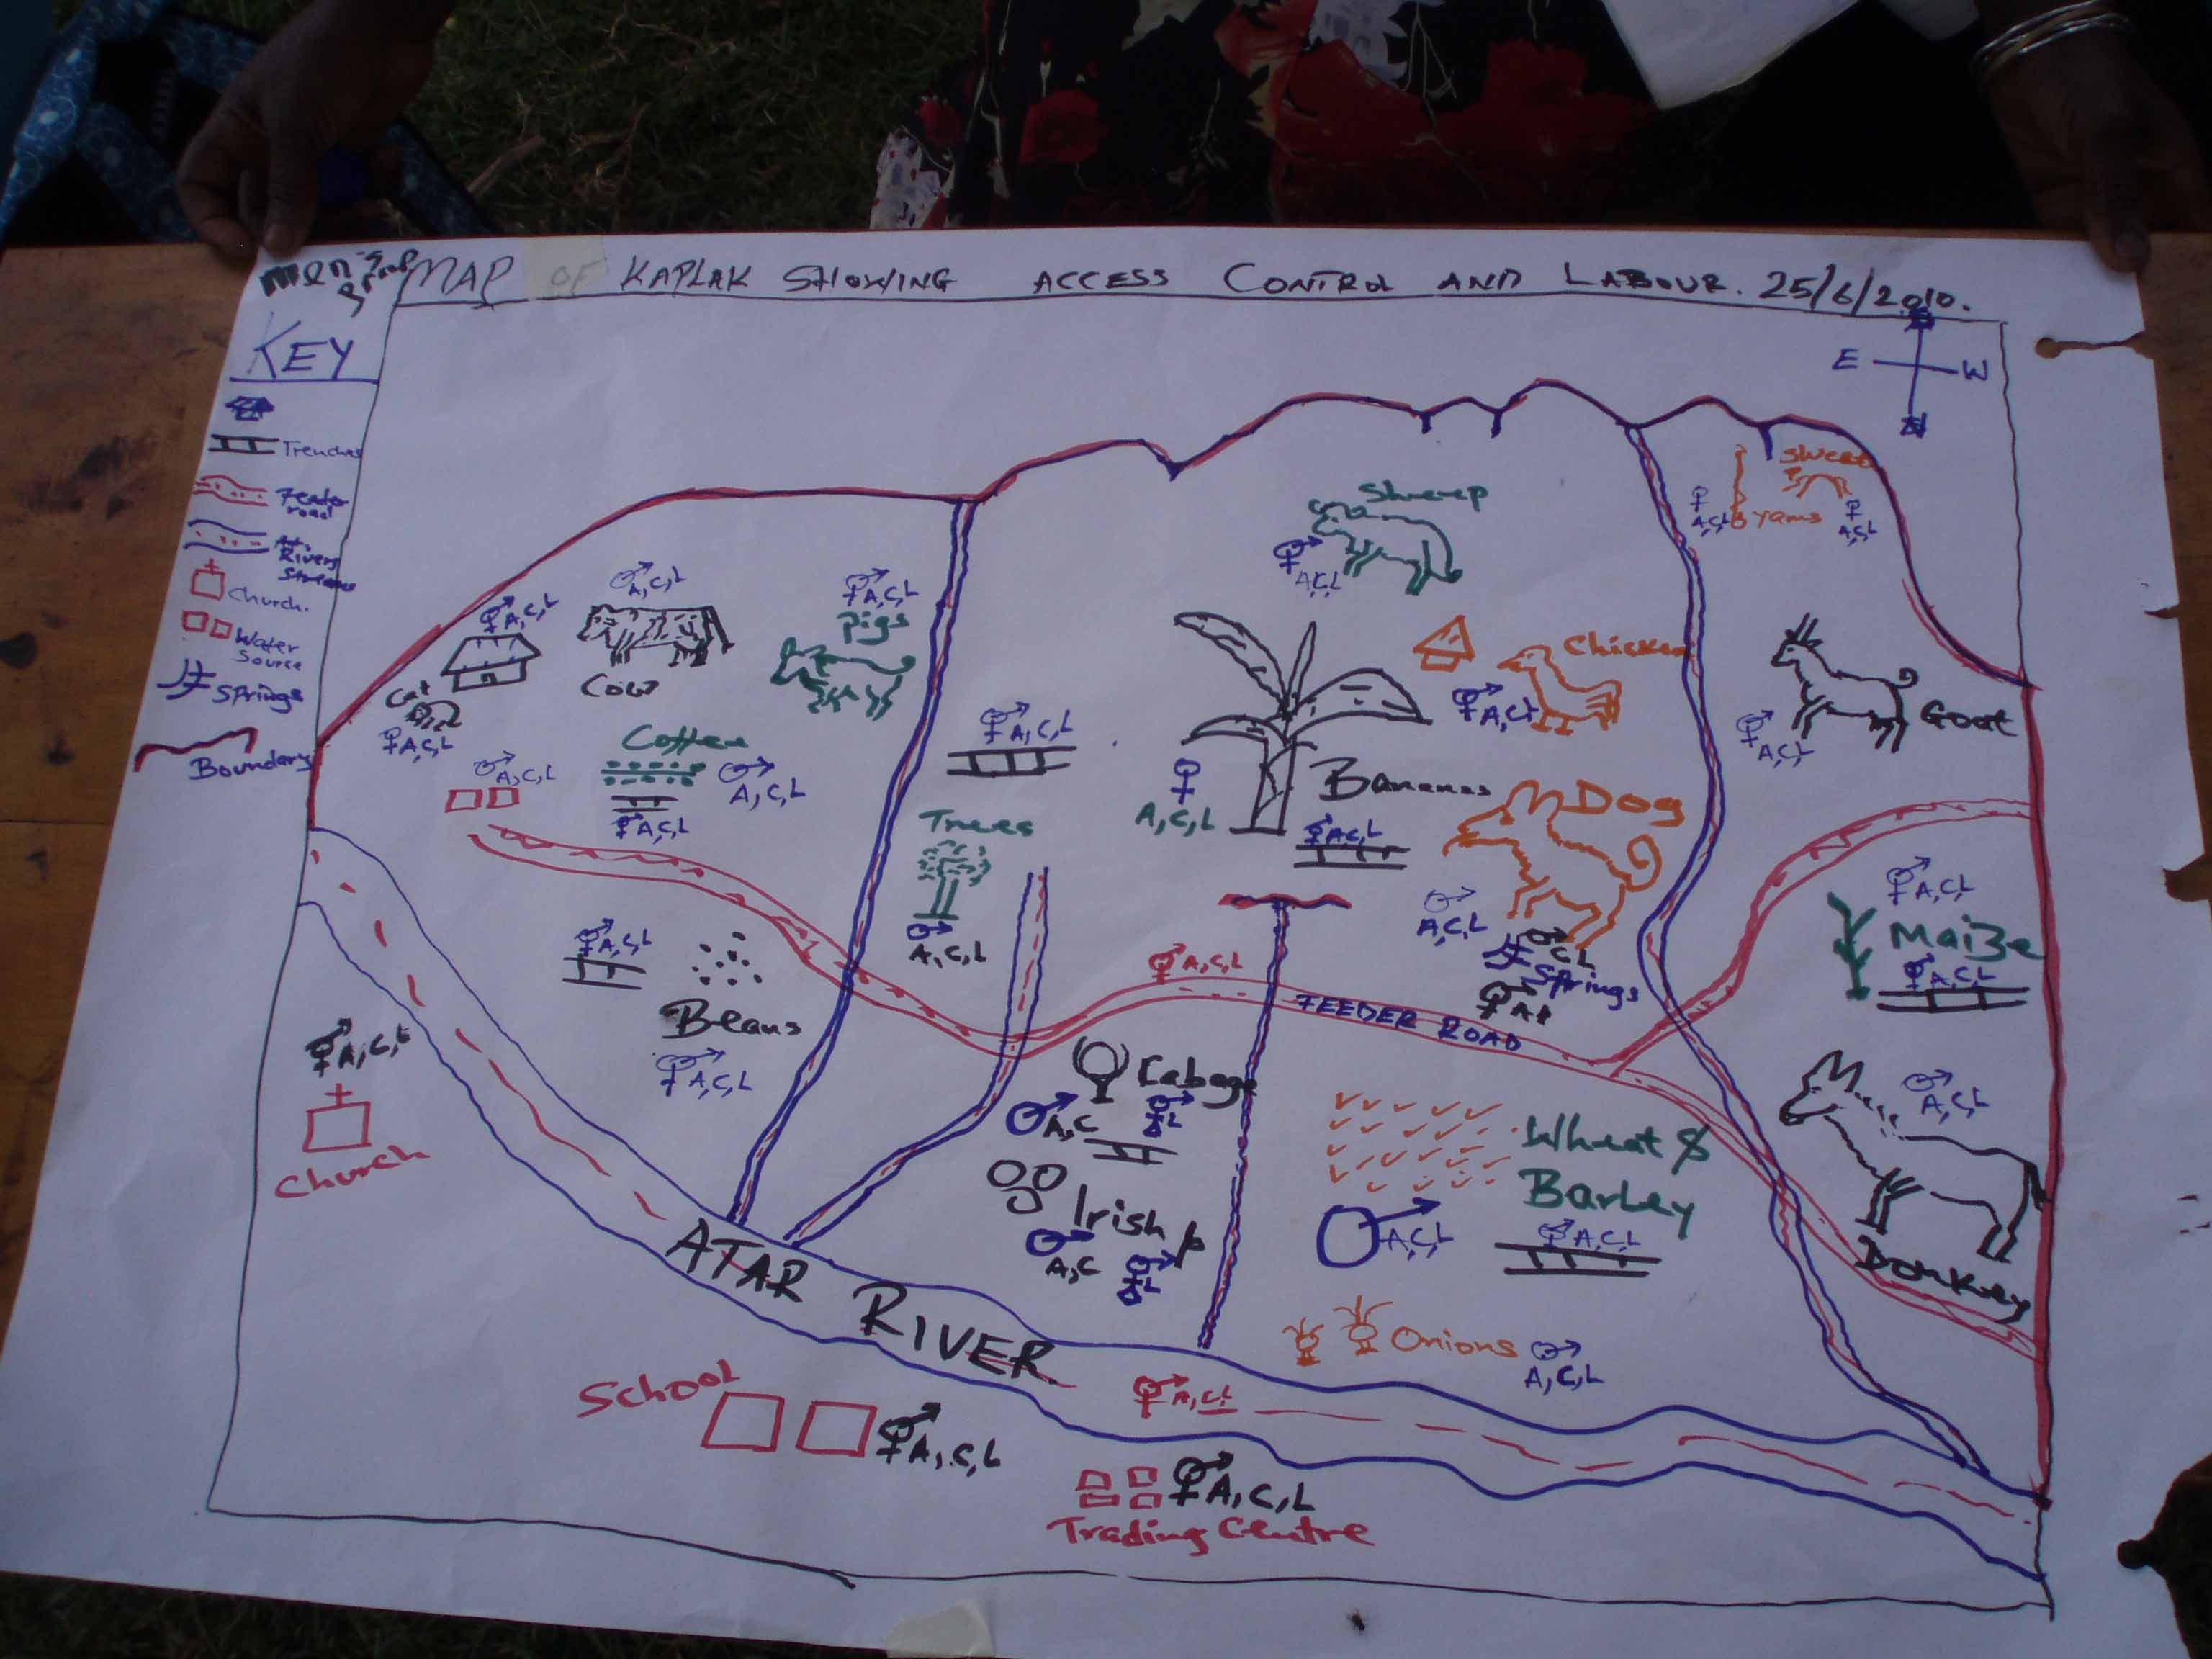 Men's Group MAP OF KAPLAK SHOWING ACCESS CONTROL AND LABOUR. 25/6/2010.
KEY
Trenches
Feeder road
Rivers
Streams
Church.
Water Source
Springs
Boundary
S
E W
N
Sweet
A,C,L Yams A,C,L
Sheep
A,C,L
A,C,L
A,C,L
A,C,L
Pigs
Cow
Cat
A,C,L
Chicken
A,C,L
Goat
A,C,L
A,C,L
Coffee
A,C,L
A,C,L
A,C,L
Bananas
A,C,L
A,C,L
Dog
A,C,L
Trees
A,C,L
C,L
Springs
A,C,L
Maize
A,C,L
A,C,L
Beans
A,C,L
A,C,L
FEEDER ROAD
A,C,L
Church
Cabage
A,C L
Irish P
A,C L
Wheat &
Barley
A,C,L
A,C,L
A,C,L
Donkey
ATAR RIVER
Onions
A,C,L
A,C,L
School
A,C,L
A,C,L
Trading Centre